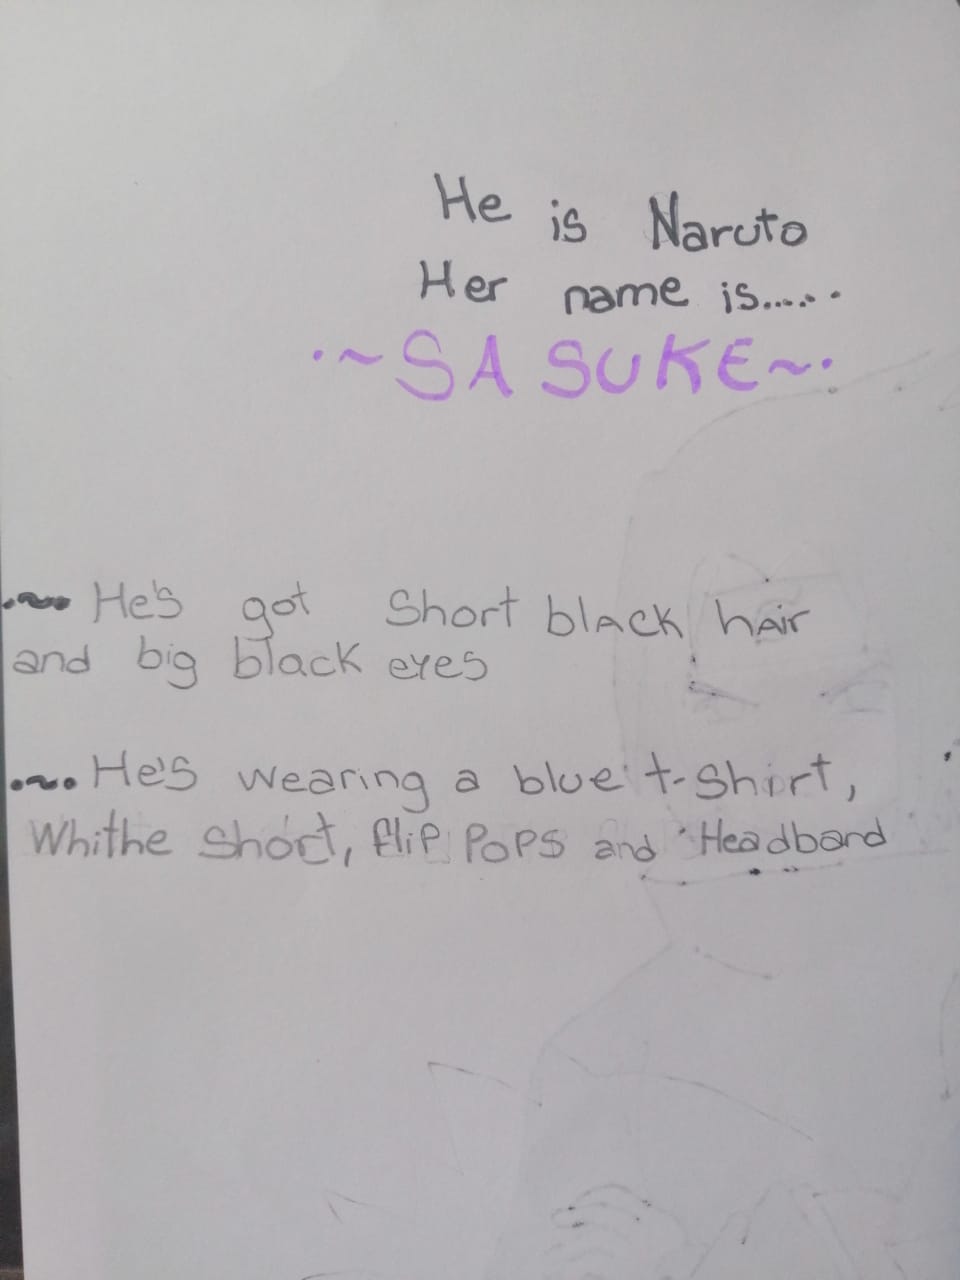 He is Naruto
Her name is......
·~SASUKE~·
·~• He's got Short blACK hAir
and big black eyes
•~• He's wearing a blue t-Shirt,
Whithe Short, flip PoPS and Headband